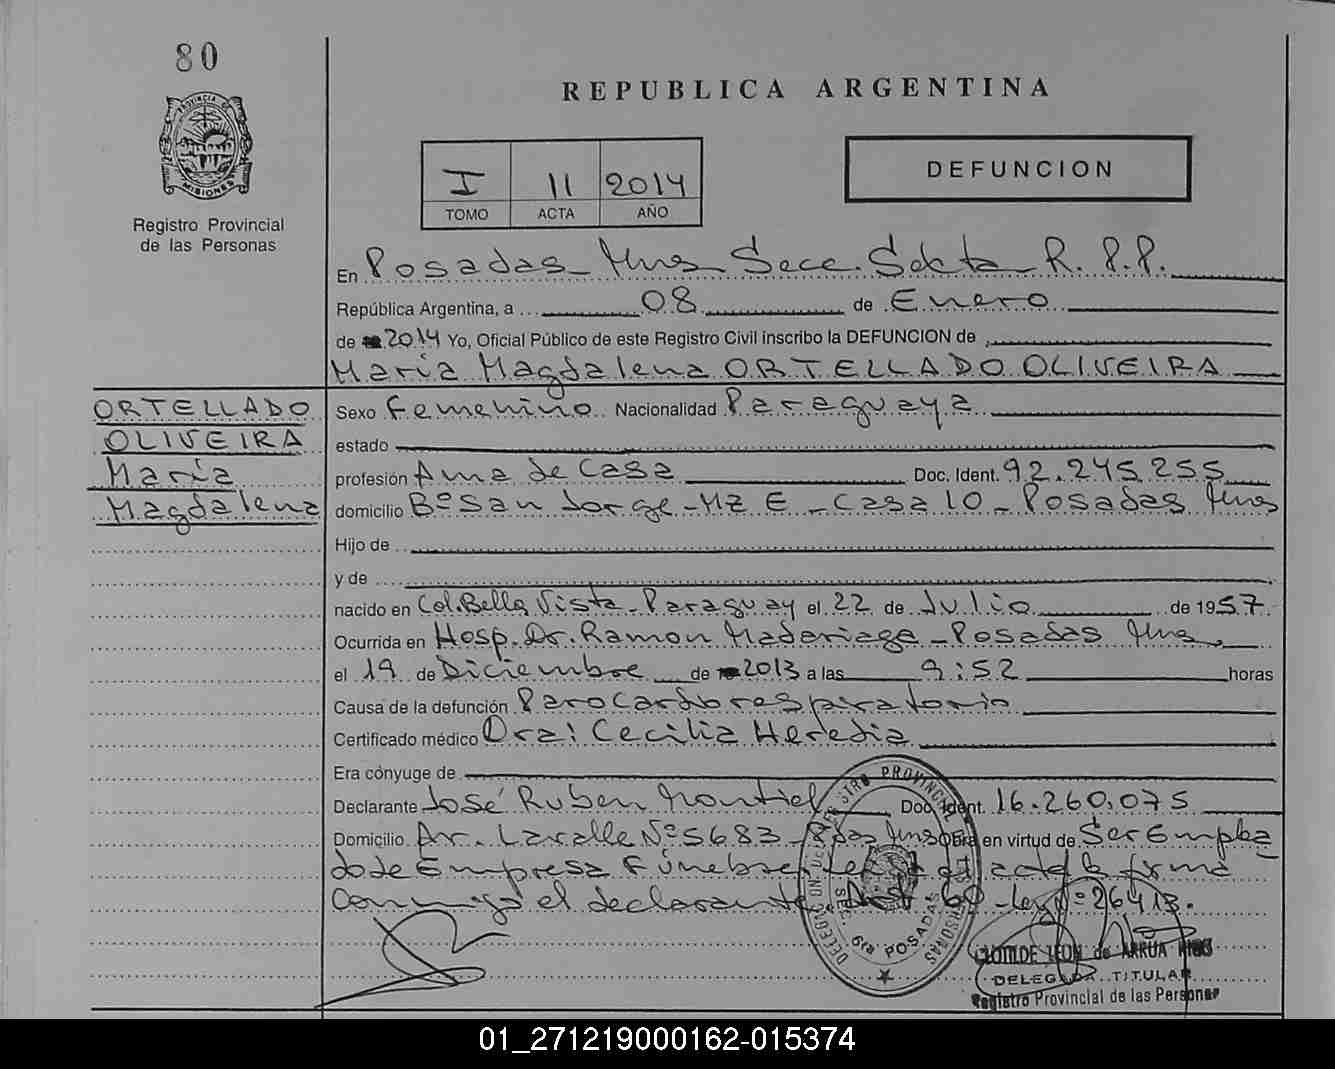 80
PROVINCIA DE
MISIONES
Registro Provincial
de las Personas
REPUBLICA ARGENTINA
I 11 2014
TOMO ACTA AÑO
DEFUNCION
En Posadas Mns Secc. Sexta R. P. P.
República Argentina, a 08 de Enero
de 2014 Yo, Oficial Público de este Registro Civil inscribo la DEFUNCION de
María Magdalena ORTELLADO OLIVEIRA
ORTELLADO
OLIVEIRA
María
Magdalena
Sexo Femenino Nacionalidad Paraguaya
estado
profesión Ama de Casa Doc. Ident. 92.245.255
domicilio Bº San Jorge - Mz E - Casa 10 - Posadas Mns
Hijo de
y de
nacido en Col. Bella Vista - Paraguay el 22 de Julio de 1957
Ocurrida en Hosp. Dr. Ramon Madariaga - Posadas Mns
el 19 de Diciembre de 2013 a las 9:52 horas
Causa de la defunción Paro Cardiorespiratorio
Certificado médico Dra: Cecilia Heredia
Era cónyuge de
Declarante José Ruben Montiel Doc. Ident. 16.260.075
Domicilio Av. Lavalle Nº 5683 - Pdas Mns Obra en virtud de Ser Emplea
do de Empresa Fúnebre acta la firma
Conmigo el declarante. Art 60 - Ley Nº 26413.
DELEGACION DEL REGISTRO PROVINCIAL DE LAS PERSONAS
SEC. 6ta POSADAS
CLOTILDE LEON de ARRUA
DELEGADA TITULAR
Registro Provincial de las Personas
01_271219000162-015374